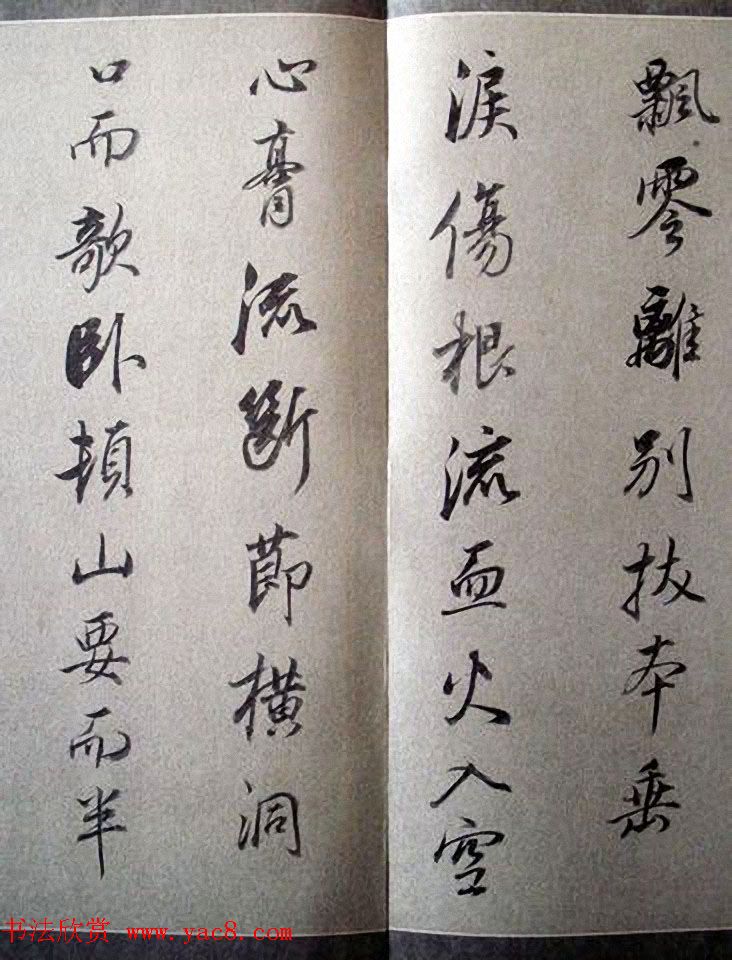 飄零離別拔本垂
淚傷根流血火入空
心膏流斷節橫洞
口而欹臥頓山要而半
书法欣赏 www.yac8.com